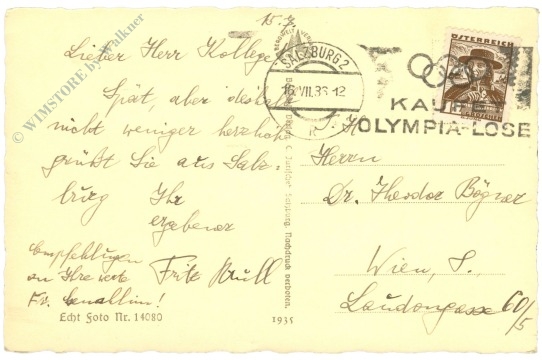 Lieber Herr Kollege
Spät, aber deshalb
nicht weniger herzlich
grüßt Sie aus Salz-
burg Ihr
ergebener
Fritz
Empfehlungen
an Ihre werte
Fr. Gemahlin!
Echt Foto Nr. 14080
1935
Nachdruck verboten.
SALZBURG 2
16. VII. 36 - 12
ÖSTERREICH
KAUFT
OLYMPIA-LOSE
Herrn
Dr. Theodor
Wien, 8.
Laudongasse 60/5
© WIMSTORE by Walkner